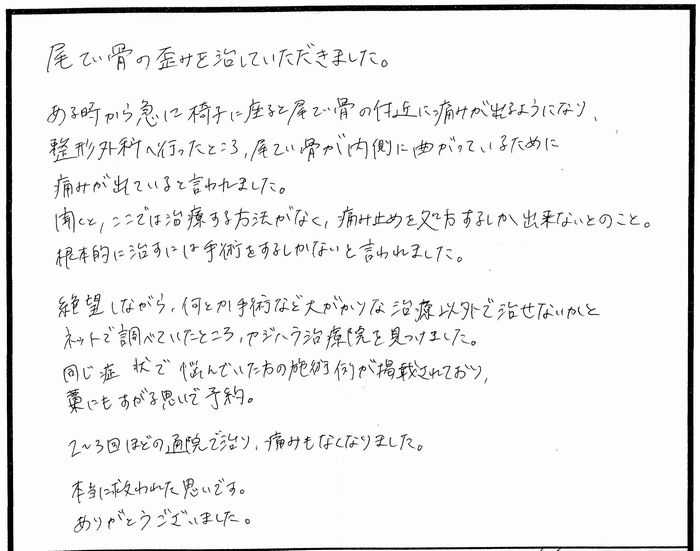 尾てい骨の歪みを治していただきました。
ある時から急に椅子に座ると尾てい骨の付近に痛みが出るようになり、
整形外科へ行ったところ、尾てい骨が内側に曲がっているために
痛みが出ていると言われました。
聞くと、ここでは治療する方法がなく、痛み止めを処方するしか出来ないとのこと。
根本的に治すには手術をするしかないと言われました。
絶望しながら、何とか手術など大がかりな治療以外で治せないかと
ネットで調べていたところ、カジハラ治療院を見つけました。
同じ症状で悩んでいた方の施術例が掲載されており、
藁にもすがる思いで予約。
2〜3回ほどの通院で治り、痛みもなくなりました。
本当に救われた思いです。
ありがとうございました。